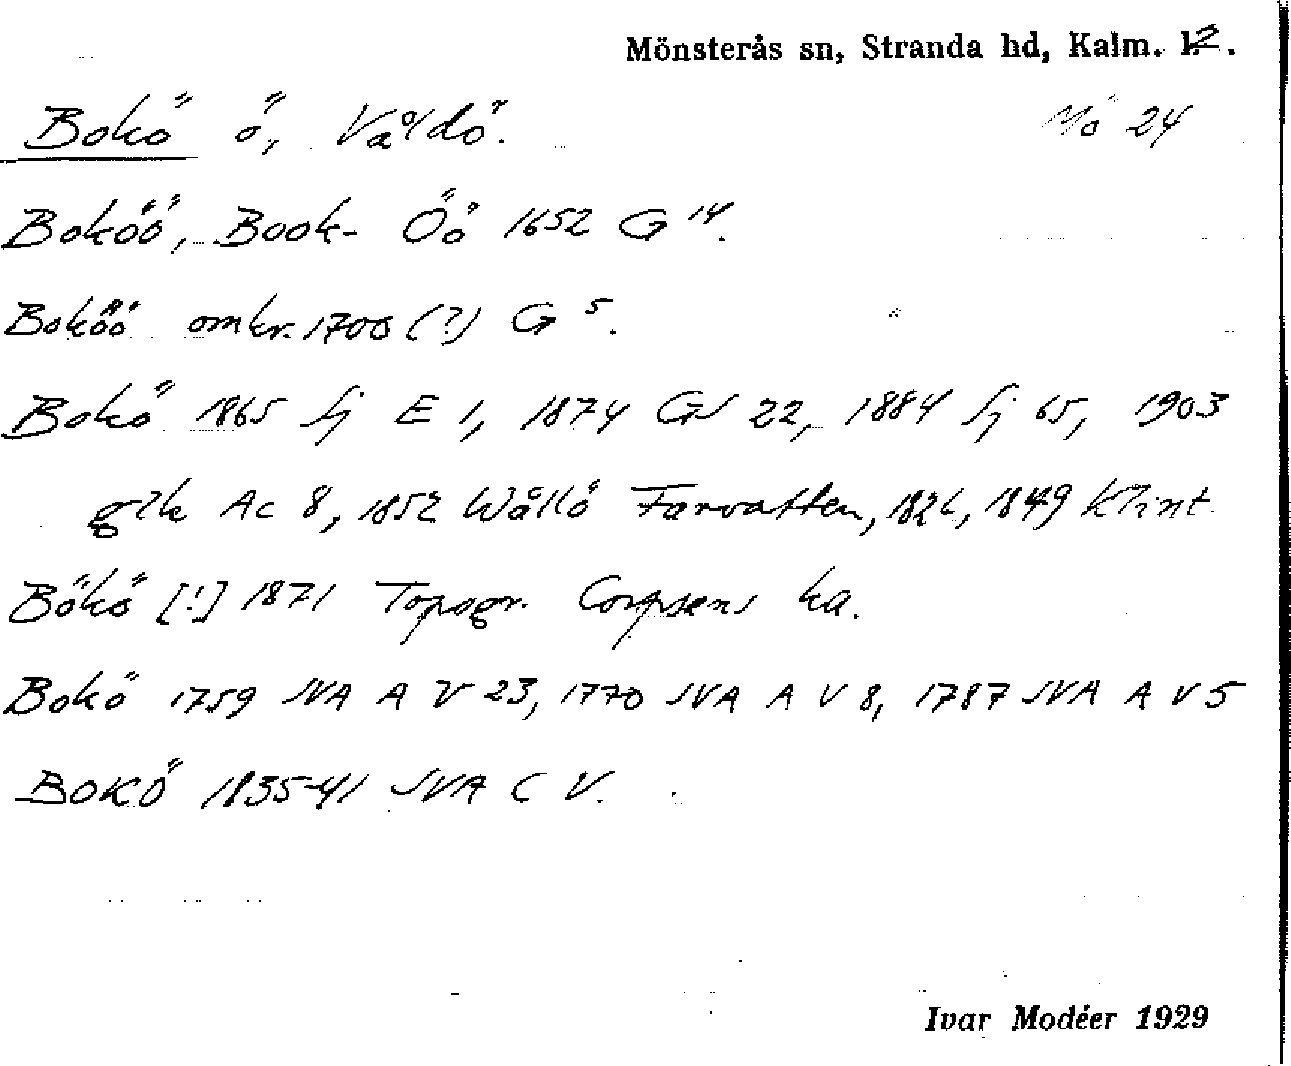 Mönsterås sn, Stranda hd, Kalm. l.
Bokö ö, Våldö. Mö 24
Boköö, Book- Öö 1652 G 14.
Boköö omkr. 1700 (?) G 5.
Bokö 1865 Sj E 1, 1874 GS 22, 1884 Sj 65, 1903
glk Ac 8, 1852 Wållö Farvatten, 1826, 1849 Klint
Bökö [!] 1871 Topogr. Corpsens ka.
Bokö 1759 SVA A V 23, 1770 SVA A V 8, 1787 SVA A V 5
Bokö 1835-41 SVA C V.
Ivar Modéer 1929